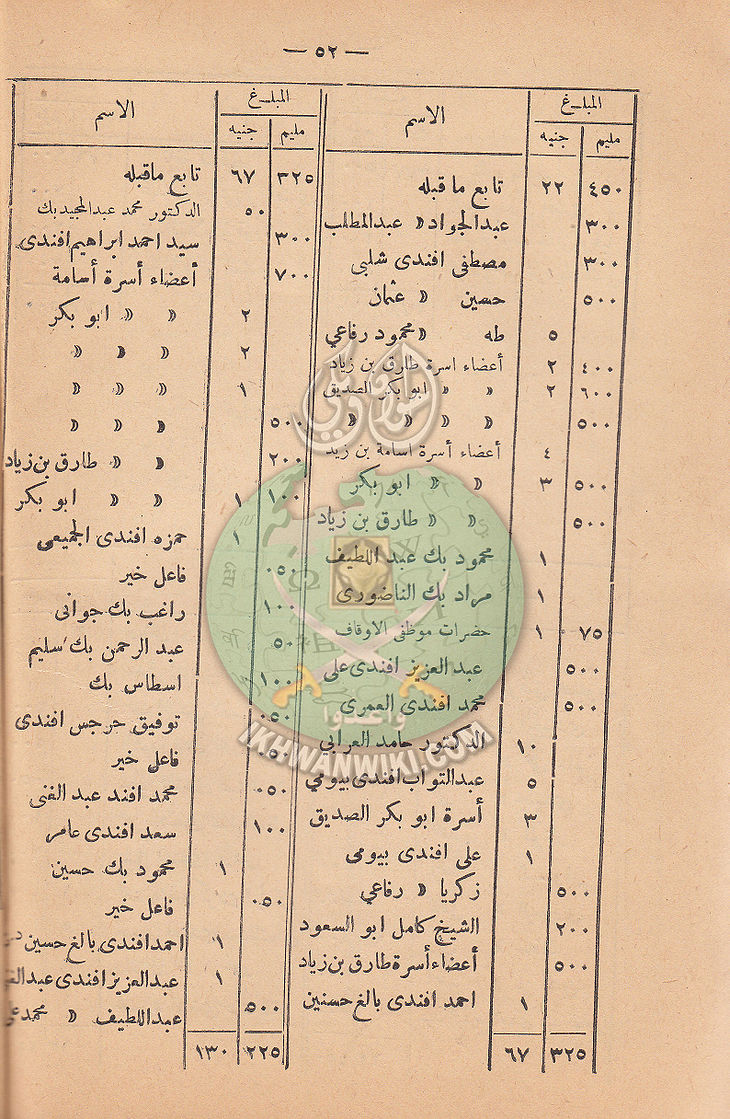 — ٥٢ —
المبلغ الاسم
مليم جنيه
٤٥٠ ٢٢ تابع ماقبله
٣٠٠ عبدالجواد « عبدالمطلب
٣٠٠ مصطفى افندى شلبى
٥٠٠ حسين « عثمان
٥ طه « محمود رفاعي
٤٠٠ ٢ أعضاء اسرة طارق بن زياد
٦٠٠ ٢ « « ابو بكر الصديق
٥٠٠ « « « «
٤ أعضاء أسرة اسامة بن زيد
٥٠٠ ٣ « « ابو بكر
٥٠٠ « « طارق بن زياد
١ محمود بك عبد اللطيف
١ مراد بك الناضورى
٧٥ ١ حضرات موظفى الاوقاف
٥٠٠ عبدالعزيز افندى على
٥٠٠ محمد افندى العمرى
١٠ الدكتور حامد العرابي
٥ عبدالتواب افندى بيومي
٣ أسرة ابو بكر الصديق
١ على افندى بيومى
٥٠٠ زكريا « رفاعي
٢٠٠ الشيخ كامل ابو السعود
٥٠٠ أعضاء أسرة طارق بن زياد
١ احمد افندى بالغ حسنين
٣٢٥ ٦٧
المبلغ الاسم
مليم جنيه
٣٢٥ ٦٧ تابع ماقبله
٥٠ الدكتور محمد عبدالمجيد بك
٣٠٠ سيد احمد ابراهيم افندى
٧٠٠ أعضاء أسرة أسامة
٢ « « ابو بكر
٢ « « «
١ « « «
٥٠٠ « « «
٢٠٠ « « طارق بن زياد
١٠٠ ١ « « ابو بكر
١ حمزه افندى الجميعى
٠٥٠ فاعل خير
١٠٠ راغب بك جوانى
٠٥٠ عبد الرحمن بك سليم
١٠٠ اسطاس بك
٠٥٠ توفيق جرجس افندى
٠٥٠ فاعل خير
٠٥٠ محمد افند عبد الغنى
١٠٠ سعد افندى عامر
١ محمود بك حسين
٠٥٠ فاعل خير
١ احمد افندى بالغ حسين
١ عبدالعزيز افندى
٥٠٠ عبداللطيف « محمد
٢٢٥ ١٣٠
وأعدوا
IKHWANWIKI.COM